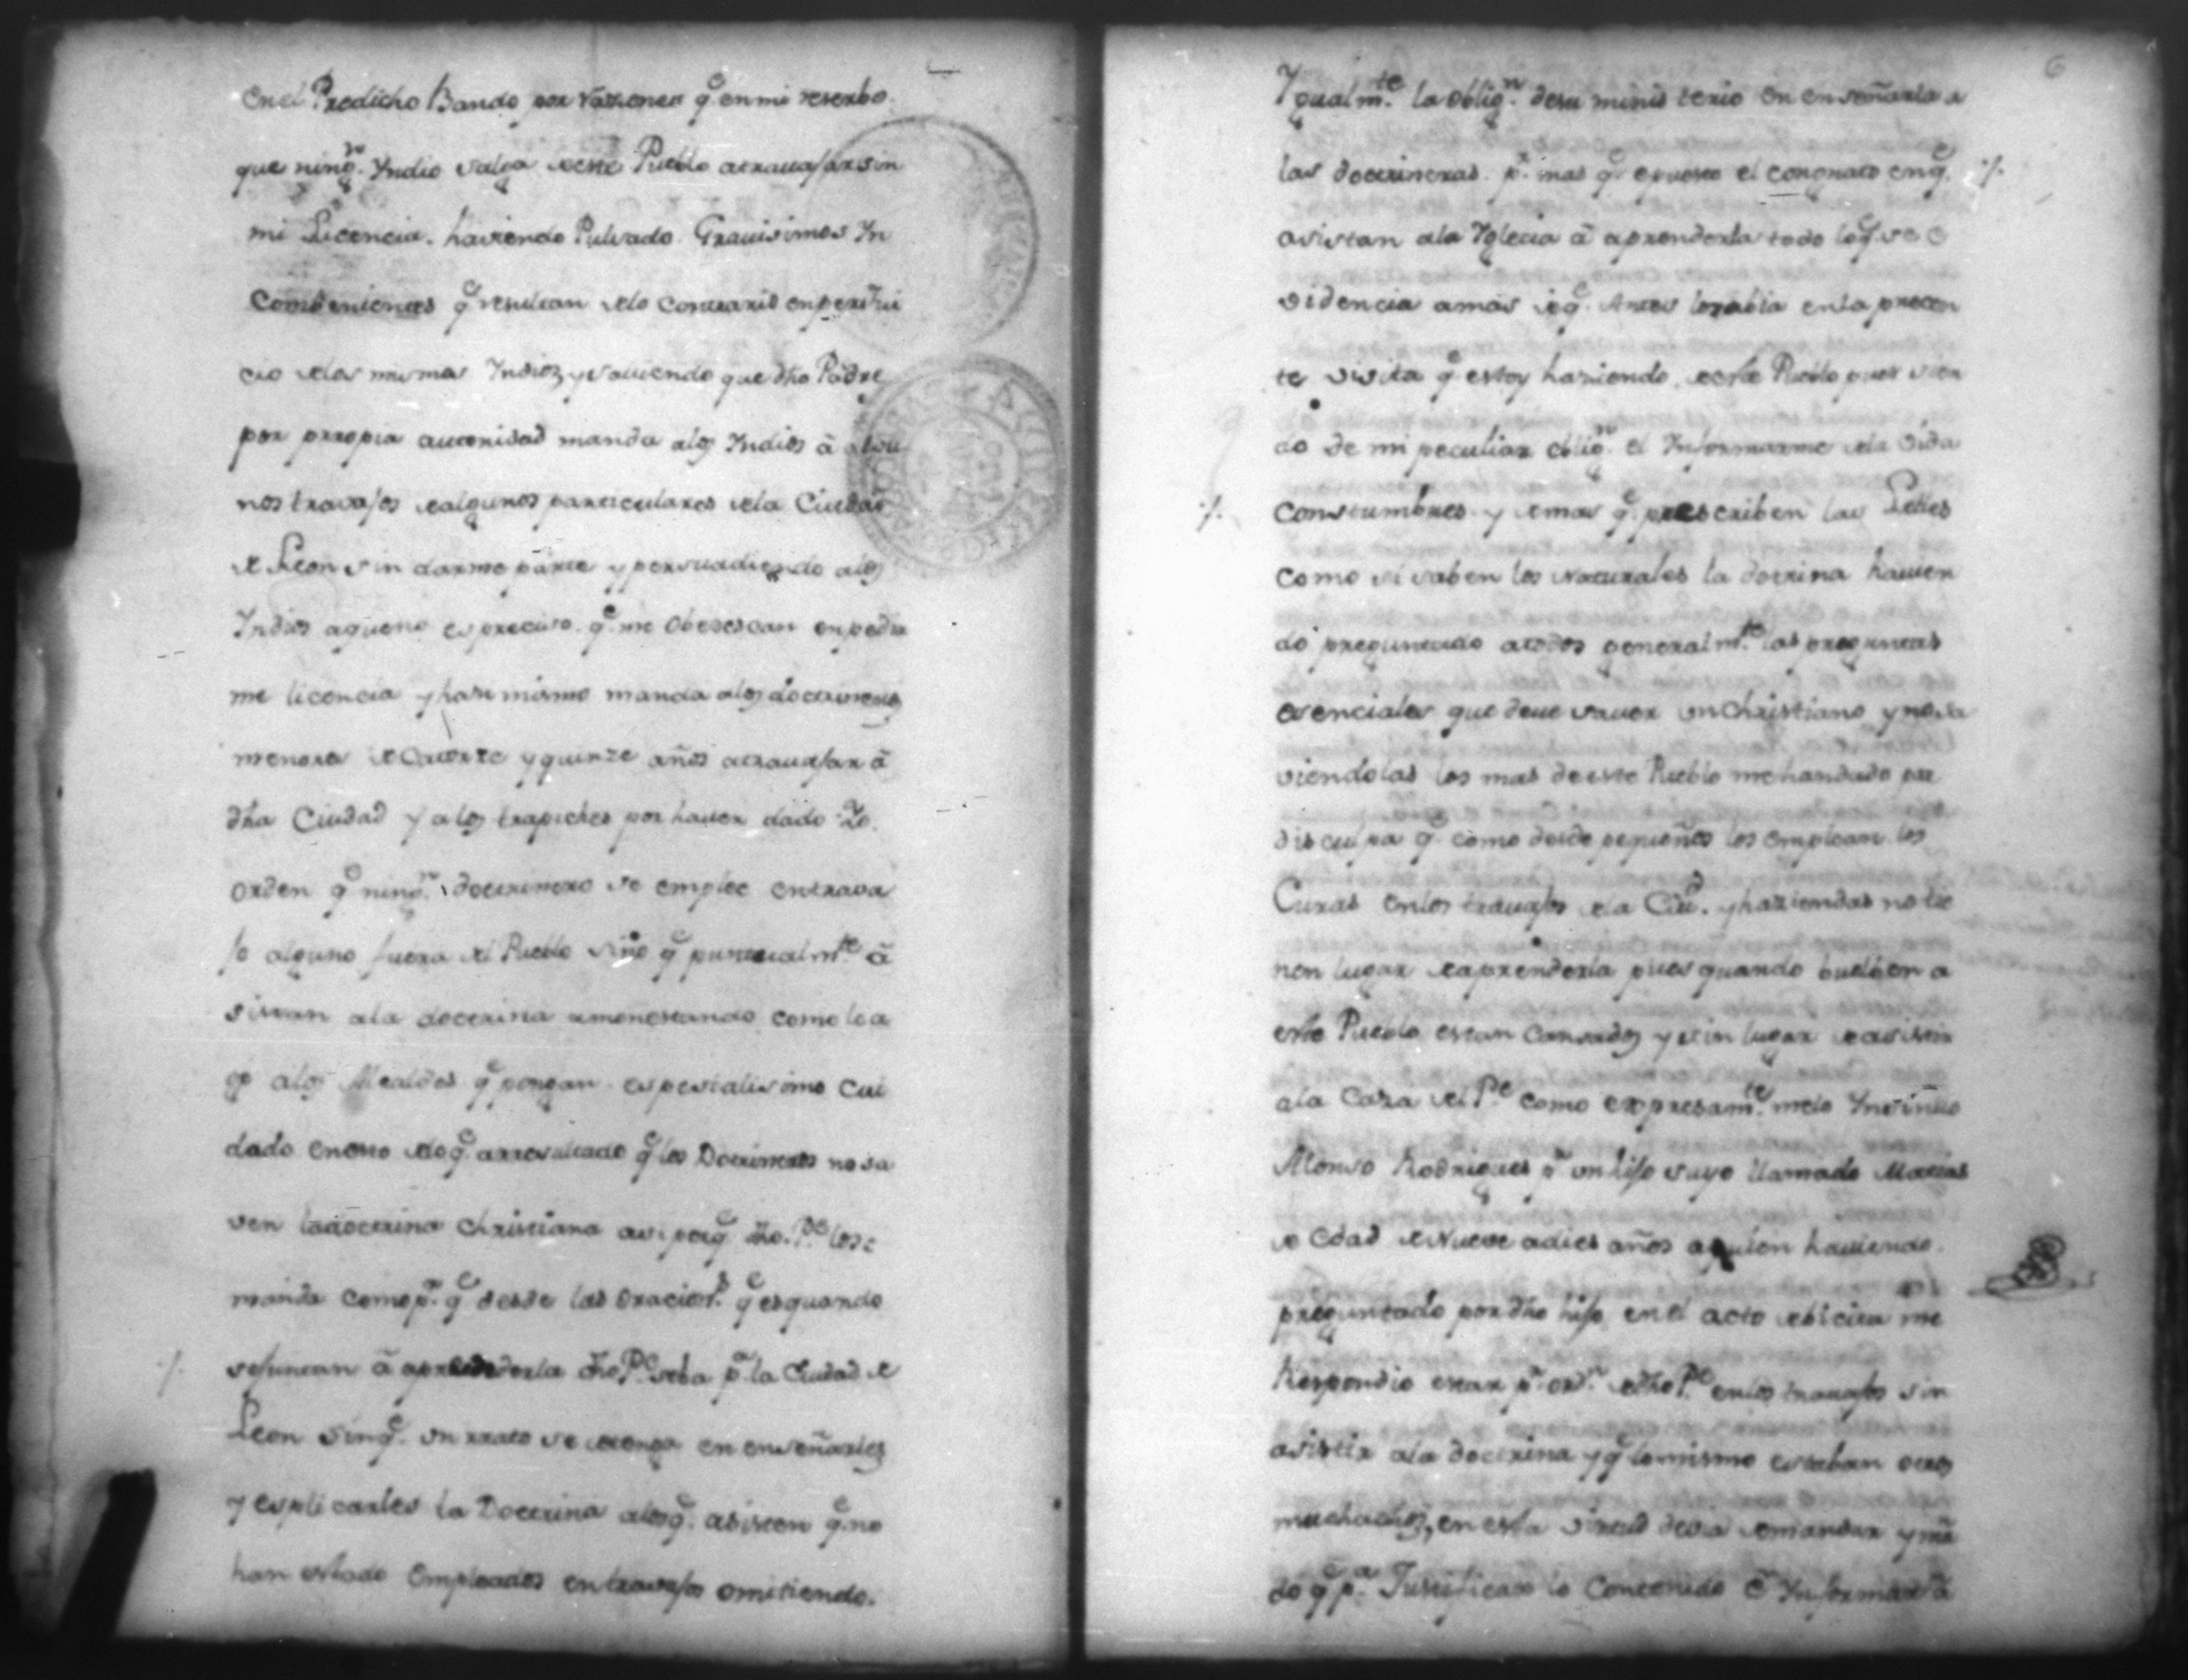 en el Predicho Bando por razones q.e en mi reserbo
que ning.n Yndio salga de este Pueblo a trauajar sin
mi Licencia. haviendo Pulsado Grauisimos Yn
combenientes q.e resultan de lo contrario en perJui
cio de los mismos Yndios, y saviendo que dho Padre
por propia autoridad manda alos Yndios â
nos travajos de algunos particulares de la Ciudad
de Leon sin darme parte y persuadiendo alos
Yndios aqueno es preciso q.e me Obedescan en pedir
me licencia y hasi mismo manda alos doctrineros
menores de Catorze y quinze años atrauajar â
dha Ciudad y a los trapiches por hauer dado Yo
orden q.e ning.n doctrinero se emplee en trava
jo alguno fuera del Pueblo sino q.e puntualm.te â
sistan ala doctrina amonestando como lo a
go alos Alcaldes q.e pongan espesialisimo cui
dado en esto de lo q.e a rresultado q.e los Doctrineros no sa
ven la doctrina christiana asi porq.e dho. P.e los
manda como p.r q.e desde las oracion.s q.e es quando
se juntan â aprenderla dho P.e se ba p.a la Ciudad de
Leon sin q.e un rrato se detenga en enseñarles
y esplicarles la Doctrina alos q.e asisten q.e no
han estado Empleados en travajos omitiendo.
6
Ygualm.te la oblig.n de su ministerio en enseñarla a
las doctrineras p.r mas q.e el en q.e
asistan ala Yglecia â aprenderla todo lo q.e se e
videncia a mas de q.e Antes lo sabia en la precen
te visita q.e estoy haziendo de este Pueblo pues sien
do de mi peculiar oblig.n el Informarme de la vida
Constumbres y demas q.e prescriben las Leies
como si saben los Naturales la doctrina hauien
do preguntado atodos generalm.te las preguntas
esenciales que deue sauer un Christiano y no sa
viendolas los mas de este Pueblo me han dado por
disculpa q.e como desde pequeños los emplean los
Curas en los trauajos de la Ciu.d y haziendas no tie
nen lugar de aprenderla pues quando buelben a
este Pueblo estan Cansados y sin lugar de asistir
ala Caza del P.e como expresam.te me lo Ynsinuo
Alonso Rodrigues p.r un hijo suyo llamado Matias
de Edad de Nueve a dies años aquien haviendo
preguntado por dho hijo en el acto de bicita me
Respondio estar p.r ord.n de dho P.e en los trauajos sin
asistir ala doctrina y q.e lo mismo estaban otros
muchachos, en esta virtud devia de mandar y mã
do q.e p.a Justificar lo Contenido ê Ynformar â